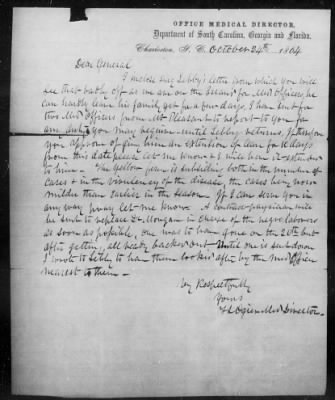 OFFICE MEDICAL DIRECTOR,
Department of South Carolina, Georgia and Florida.
Charleston, S. C. October 24th 1864
Dear General
I inclose Surg Lebby's letter from which you will
see that badly off as we are on the Island for Med Officers, he
can hardly leave his family yet for a few days, I have but for
two Med Officers from Mt Pleasant to report to you for
any duty you may assign until Lebby returns, if then you
you approve of giving him an extension of leave for 10 days
from this date please let me know & I will have it extended
to him. The yellow fever is subsiding both in the number of
cases & in the virulency of the disease, the cases being more
milder than earlier in the season. If I can serve you in
any way pray let me know. A contract physician will
be sent to replace Dr Morgan in charge of the negro laborers
as soon as possible, one was to have gone on the 20th but
after getting all ready backed out. Until one is sent down
I wrote to Lebby to have them looked after by the Med officer
nearest to them.
Very Respectfully
Yours
Med Director